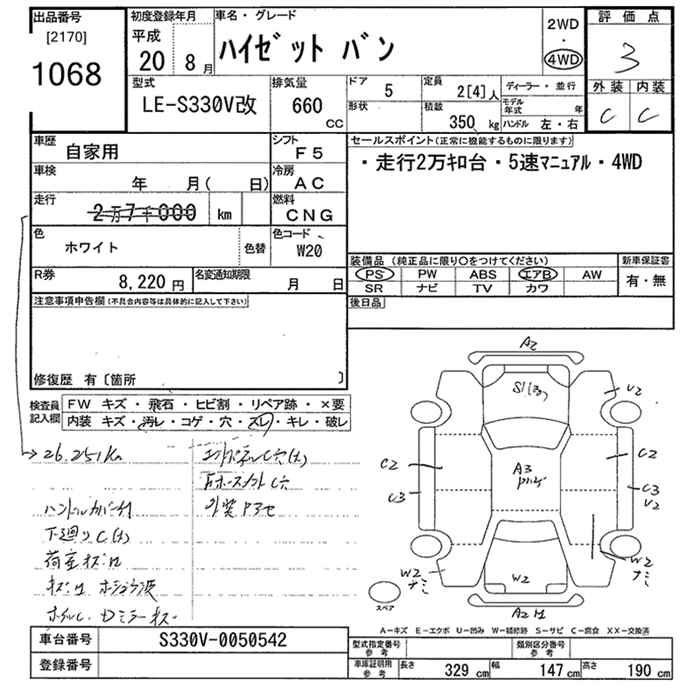 出品番号
[2170]
1068
初度登録年月
平成
20 8月
車名・グレード
ハイゼット バン
2WD
・
4WD
評価点
3
外装 内装
C C
型式
LE-S330V改
排気量
660
CC
ドア
5
形状
定員
2[4]人
積載
350 kg
ディーラー・並行
モデル年式 年
ハンドル 左・右
車歴
自家用
シフト
F5
車検
年 月( 日)
冷房
AC
走行
2万7千000 km
燃料
CNG
色
ホワイト
色替
色コード
W20
R券
8,220円
名変通知期限
月 日
セールスポイント(正常に機能するものに限ります)
・走行2万キロ台・5速マニュアル・4WD
装備品(純正品に限り○をつけてください)
新車保証書
PS PW ABS エアB AW
SR ナビ TV カワ
有・無
後日品
注意事項申告欄(不具合内容等は具体的に記入して下さい)
修復歴 有〔箇所 〕
検査員記入欄
FW キズ・飛石・ヒビ割・リペア跡・×要
内装 キズ・汚レ・コゲ・穴・スレ・キレ・破レ
26.251Km
ハンドルカバー付
下廻りC(大)
荷室キズ凹
A2
U2
C2
C3
A3
C2
C3
U2
W2
ナミ
W2
W2
ナミ
スペア
A2
A-キズ E-エクボ U-凹み W-補修跡 S-サビ C-腐食 XX-交換済
車台番号
S330V-0050542
登録番号
型式指定番号
参考
類別区分番号
参考
車庫証明用
参考
長さ 329 cm 幅 147 cm 高さ 190 cm